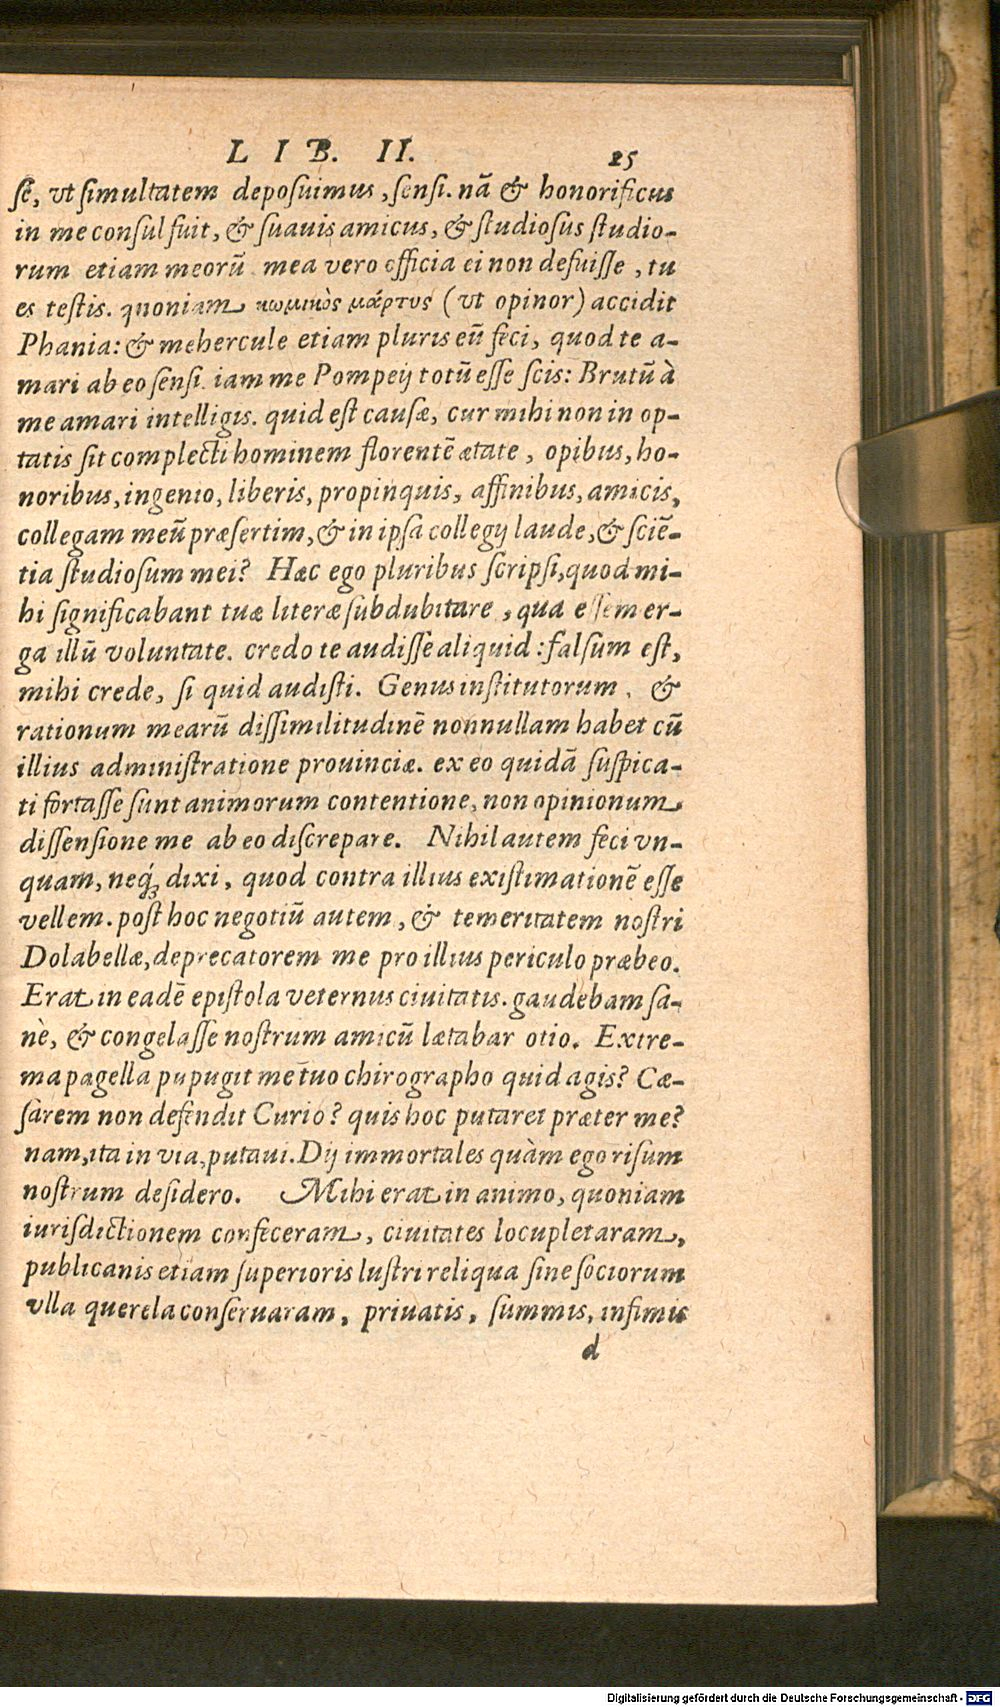 L I B. II. 25
ſe, vt ſimultatem depoſuimus, ſenſi. nã & honorificus
in me conſul fuit, & ſuauis amicus, & ſtudioſus ſtudio-
rum etiam meorũ. mea vero officia ei non defuiſſe, tu
es teſtis. quoniam κωμικὸς μάρτυς (vt opinor) accidit
Phania: & mehercule etiam pluris eũ feci, quod te a-
mari ab eo ſenſi. iam me Pompeij totũ eſſe ſcis: Brutũ à
me amari intelligis. quid eſt cauſæ, cur mihi non in op-
tatis ſit complecti hominem florentẽ ætate, opibus, ho-
noribus, ingenio, liberis, propinquis, affinibus, amicis,
collegam meũ præſertim, & in ipſa collegij laude, & ſciẽ-
tia ſtudioſum mei? Hæc ego pluribus ſcripſi, quod mi-
hi ſignificabant tuæ literæ ſubdubitare, qua eſſem er-
ga illũ voluntate. credo te audiſſe aliquid: falſum eſt,
mihi crede, ſi quid audiſti. Genus inſtitutorum, &
rationum mearũ diſſimilitudinẽ nonnullam habet cũ
illius adminiſtratione prouinciæ. ex eo quidã ſuſpica-
ti fortaſſe ſunt animorum contentione, non opinionum
diſſenſione me ab eo diſcrepare. Nihil autem feci vn-
quam, neq́; dixi, quod contra illius exiſtimationẽ eſſe
vellem. poſt hoc negotiũ autem, & temeritatem noſtri
Dolabellæ, deprecatorem me pro illius periculo præbeo.
Erat in eadẽ epiſtola veternus ciuitatis. gaudebam ſa-
nè, & congelaſſe noſtrum amicũ lætabar otio. Extre-
ma pagella pupugit me tuo chirographo quid agis? Cæ-
ſarem non defendit Curio? quis hoc putaret præter me?
nam, ita in via, putaui. Dij immortales quàm ego riſum
noſtrum deſidero. Mihi erat in animo, quoniam
iuriſdictionem confeceram, ciuitates locupletaram,
publicanis etiam ſuperioris luſtri reliqua ſine ſociorum
vlla querela conſeruaram, priuatis, ſummis, infimis
d
Digitalisierung gefördert durch die Deutsche Forschungsgemeinschaft - DFG